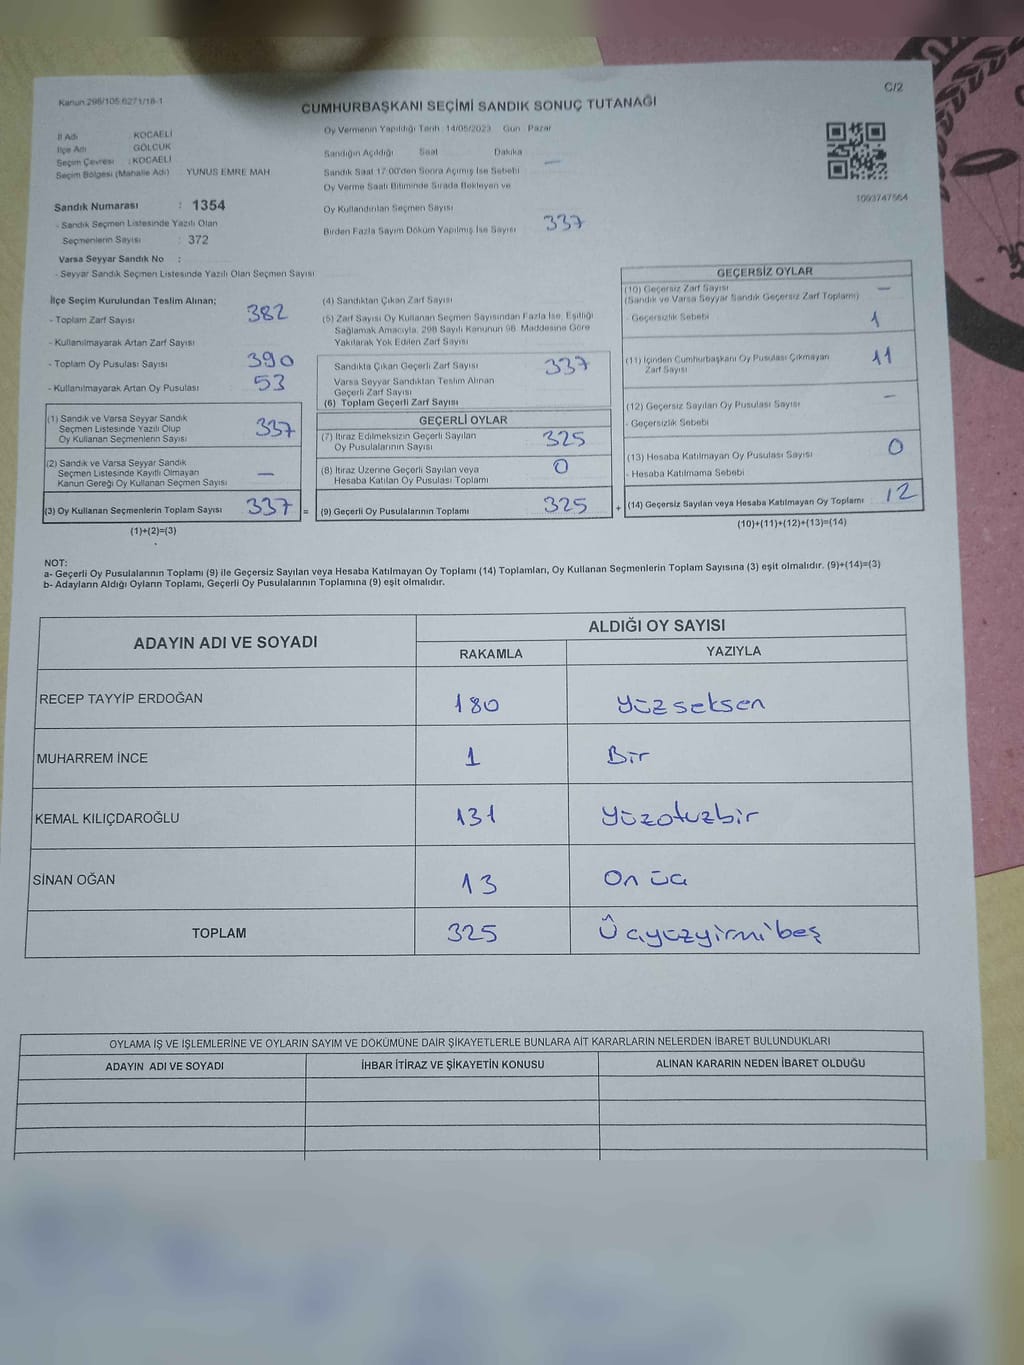 Kanun 298/105.6271/18-1
C/2
CUMHURBAŞKANI SEÇİMİ SANDIK SONUÇ TUTANAĞI
İl Adı KOCAELİ
İlçe Adı GÖLCÜK
Seçim Çevresi : KOCAELİ
Seçim Bölgesi (Mahalle Adı) YUNUS EMRE MAH
Sandık Numarası : 1354
- Sandık Seçmen Listesinde Yazılı Olan
Seçmenlerin Sayısı : 372
Varsa Seyyar Sandık No :
- Seyyar Sandık Seçmen Listesinde Yazılı Olan Seçmen Sayısı
Oy Vermenin Yapıldığı Tarih : 14/05/2023 Gün : Pazar
Sandığın Açıldığı Saat Dakika
Sandık Saat 17:00'den Sonra Açımış İse Sebebi —
Oy Verme Saati Bitiminde Sırada Bekleyen ve
Oy Kullandırılan Seçmen Sayısı
Birden Fazla Sayım Döküm Yapılmış İse Sayısı 337
1093747564
İlçe Seçim Kurulundan Teslim Alınan;
- Toplam Zarf Sayısı 382
- Kullanılmayarak Artan Zarf Sayısı
- Toplam Oy Pusulası Sayısı 390
- Kullanılmayarak Artan Oy Pusulası 53
(1) Sandık ve Varsa Seyyar Sandık
Seçmen Listesinde Yazılı Olup
Oy Kullanan Seçmenlerin Sayısı 337
(2) Sandık ve Varsa Seyyar Sandık
Seçmen Listesinde Kayıtlı Olmayan
Kanun Gereği Oy Kullanan Seçmen Sayısı —
(3) Oy Kullanan Seçmenlerin Toplam Sayısı 337 =
(1)+(2)=(3)
(4) Sandıktan Çıkan Zarf Sayısı
(5) Zarf Sayısı Oy Kullanan Seçmen Sayısından Fazla İse, Eşitliği
Sağlamak Amacıyla, 298 Sayılı Kanunun 98. Maddesine Göre
Yakılarak Yok Edilen Zarf Sayısı
Sandıkta Çıkan Geçerli Zarf Sayısı 337
Varsa Seyyar Sandıktan Teslim Alınan
Geçerli Zarf Sayısı
(6) Toplam Geçerli Zarf Sayısı
GEÇERLİ OYLAR
(7) İtiraz Edilmeksizin Geçerli Sayılan
Oy Pusulalarının Sayısı 325
(8) İtiraz Üzerine Geçerli Sayılan veya
Hesaba Katılan Oy Pusulası Toplamı 0
(9) Geçerli Oy Pusulalarının Toplamı 325 +
GEÇERSİZ OYLAR
(10) Geçersiz Zarf Sayısı —
(Sandık ve Varsa Seyyar Sandık Geçersiz Zarf Toplamı)
- Geçersizlik Sebebi 1
(11) İçinden Cumhurbaşkanı Oy Pusulası Çıkmayan
Zarf Sayısı 11
(12) Geçersiz Sayılan Oy Pusulası Sayısı —
- Geçersizlik Sebebi
(13) Hesaba Katılmayan Oy Pusulası Sayısı 0
- Hesaba Katılmama Sebebi
(14) Geçersiz Sayılan veya Hesaba Katılmayan Oy Toplamı 12
(10)+(11)+(12)+(13)=(14)
NOT:
a- Geçerli Oy Pusulalarının Toplamı (9) ile Geçersiz Sayılan veya Hesaba Katılmayan Oy Toplamı (14) Toplamları, Oy Kullanan Seçmenlerin Toplam Sayısına (3) eşit olmalıdır. (9)+(14)=(3)
b- Adayların Aldığı Oyların Toplamı, Geçerli Oy Pusulalarının Toplamına (9) eşit olmalıdır.
ADAYIN ADI VE SOYADI ALDIĞI OY SAYISI
RAKAMLA YAZIYLA
RECEP TAYYİP ERDOĞAN 180 Yüzseksen
MUHARREM İNCE 1 Bir
KEMAL KILIÇDAROĞLU 131 Yüzotuzbir
SİNAN OĞAN 13 On üç
TOPLAM 325 Üçyüzyirmibeş
OYLAMA İŞ VE İŞLEMLERİNE VE OYLARIN SAYIM VE DÖKÜMÜNE DAİR ŞİKAYETLERLE BUNLARA AİT KARARLARIN NELERDEN İBARET BULUNDUKLARI
ADAYIN ADI VE SOYADI İHBAR İTİRAZ VE ŞİKAYETİN KONUSU ALINAN KARARIN NEDEN İBARET OLDUĞU